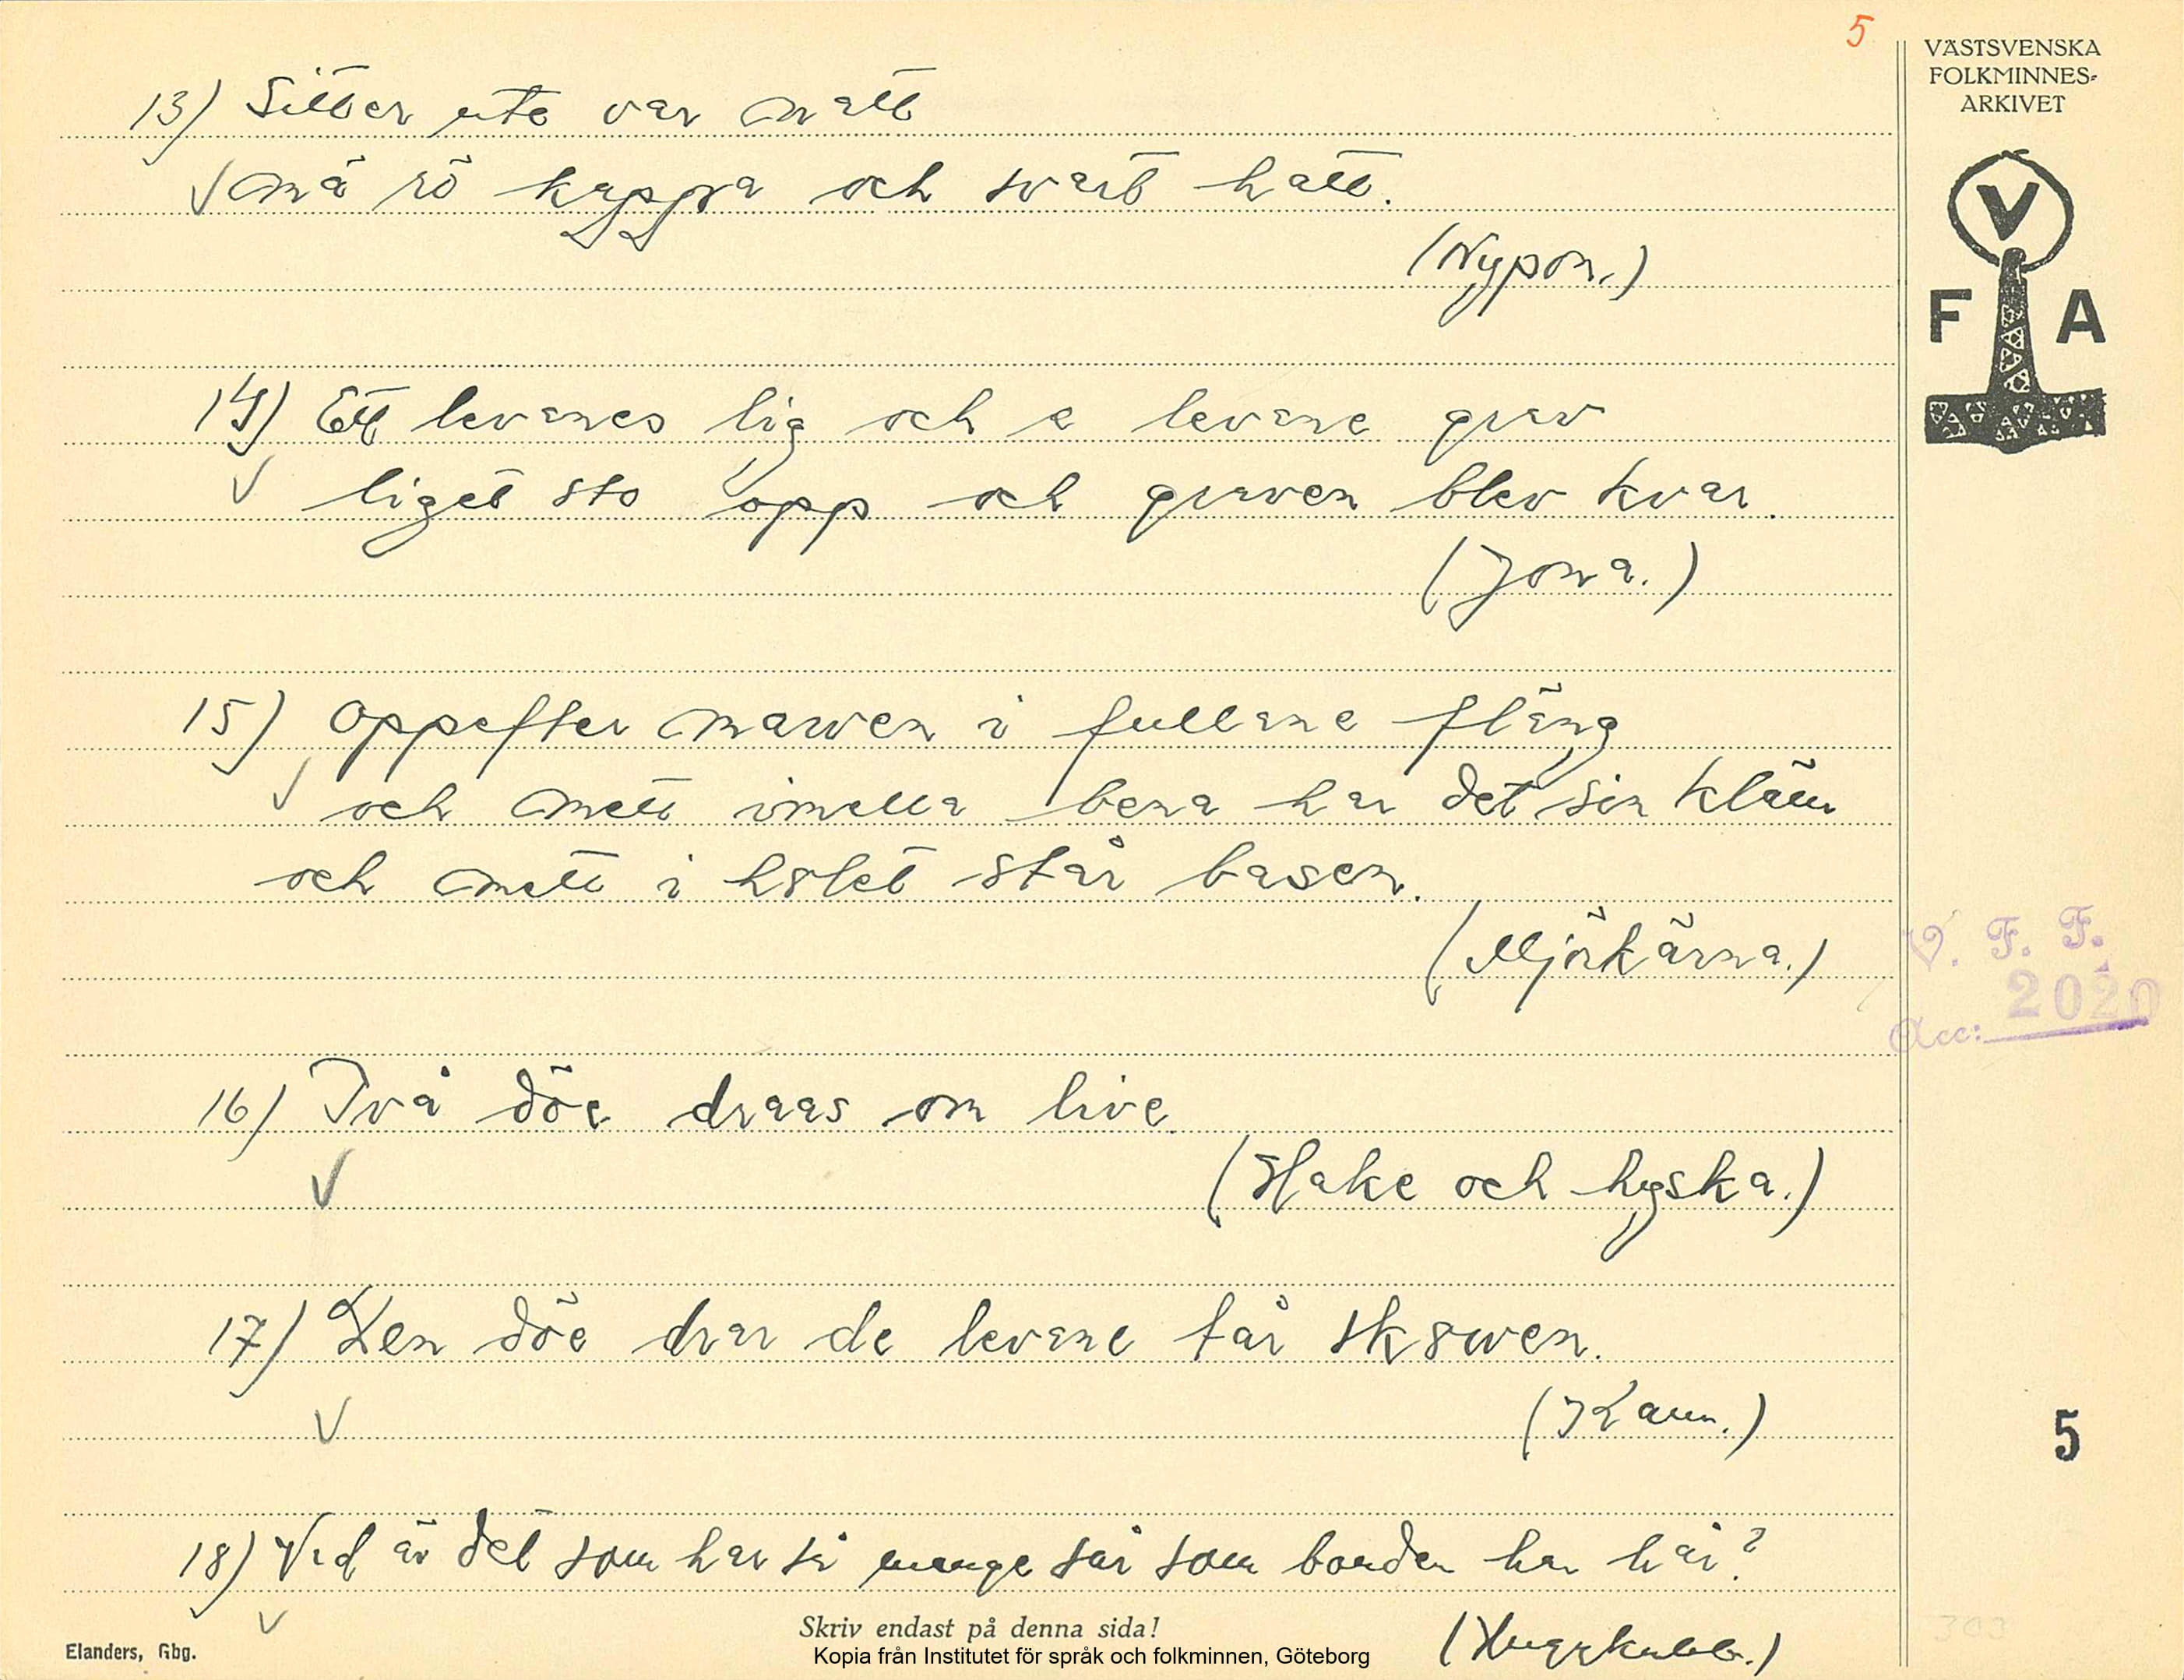 5
VÄSTSVENSKA
FOLKMINNES-
ARKIVET
V
F A
13) Sitter ute var natt
mä rö kappa och svart hatt.
(Nypon.)
14) Ett levanes lig och e levane grav
liget sto opp och graven blev kvar.
(Jona.)
15) Oppefter marven i fullane fläng
och mett imella bena har det sin kläm
och mett i holet står basen.
(Mjörkärna.)
V. F. F.
Acc: 2020
16) Två döe draas om live
(Hake och hyska.)
17) Den döe drar de levane får skowen.
(Kam.)
5
18) Vad är det som har så mange sår som bonden har hår?
(Huggkubb.)
Skriv endast på denna sida!
Elanders, Gbg.
Kopia från Institutet för språk och folkminnen, Göteborg